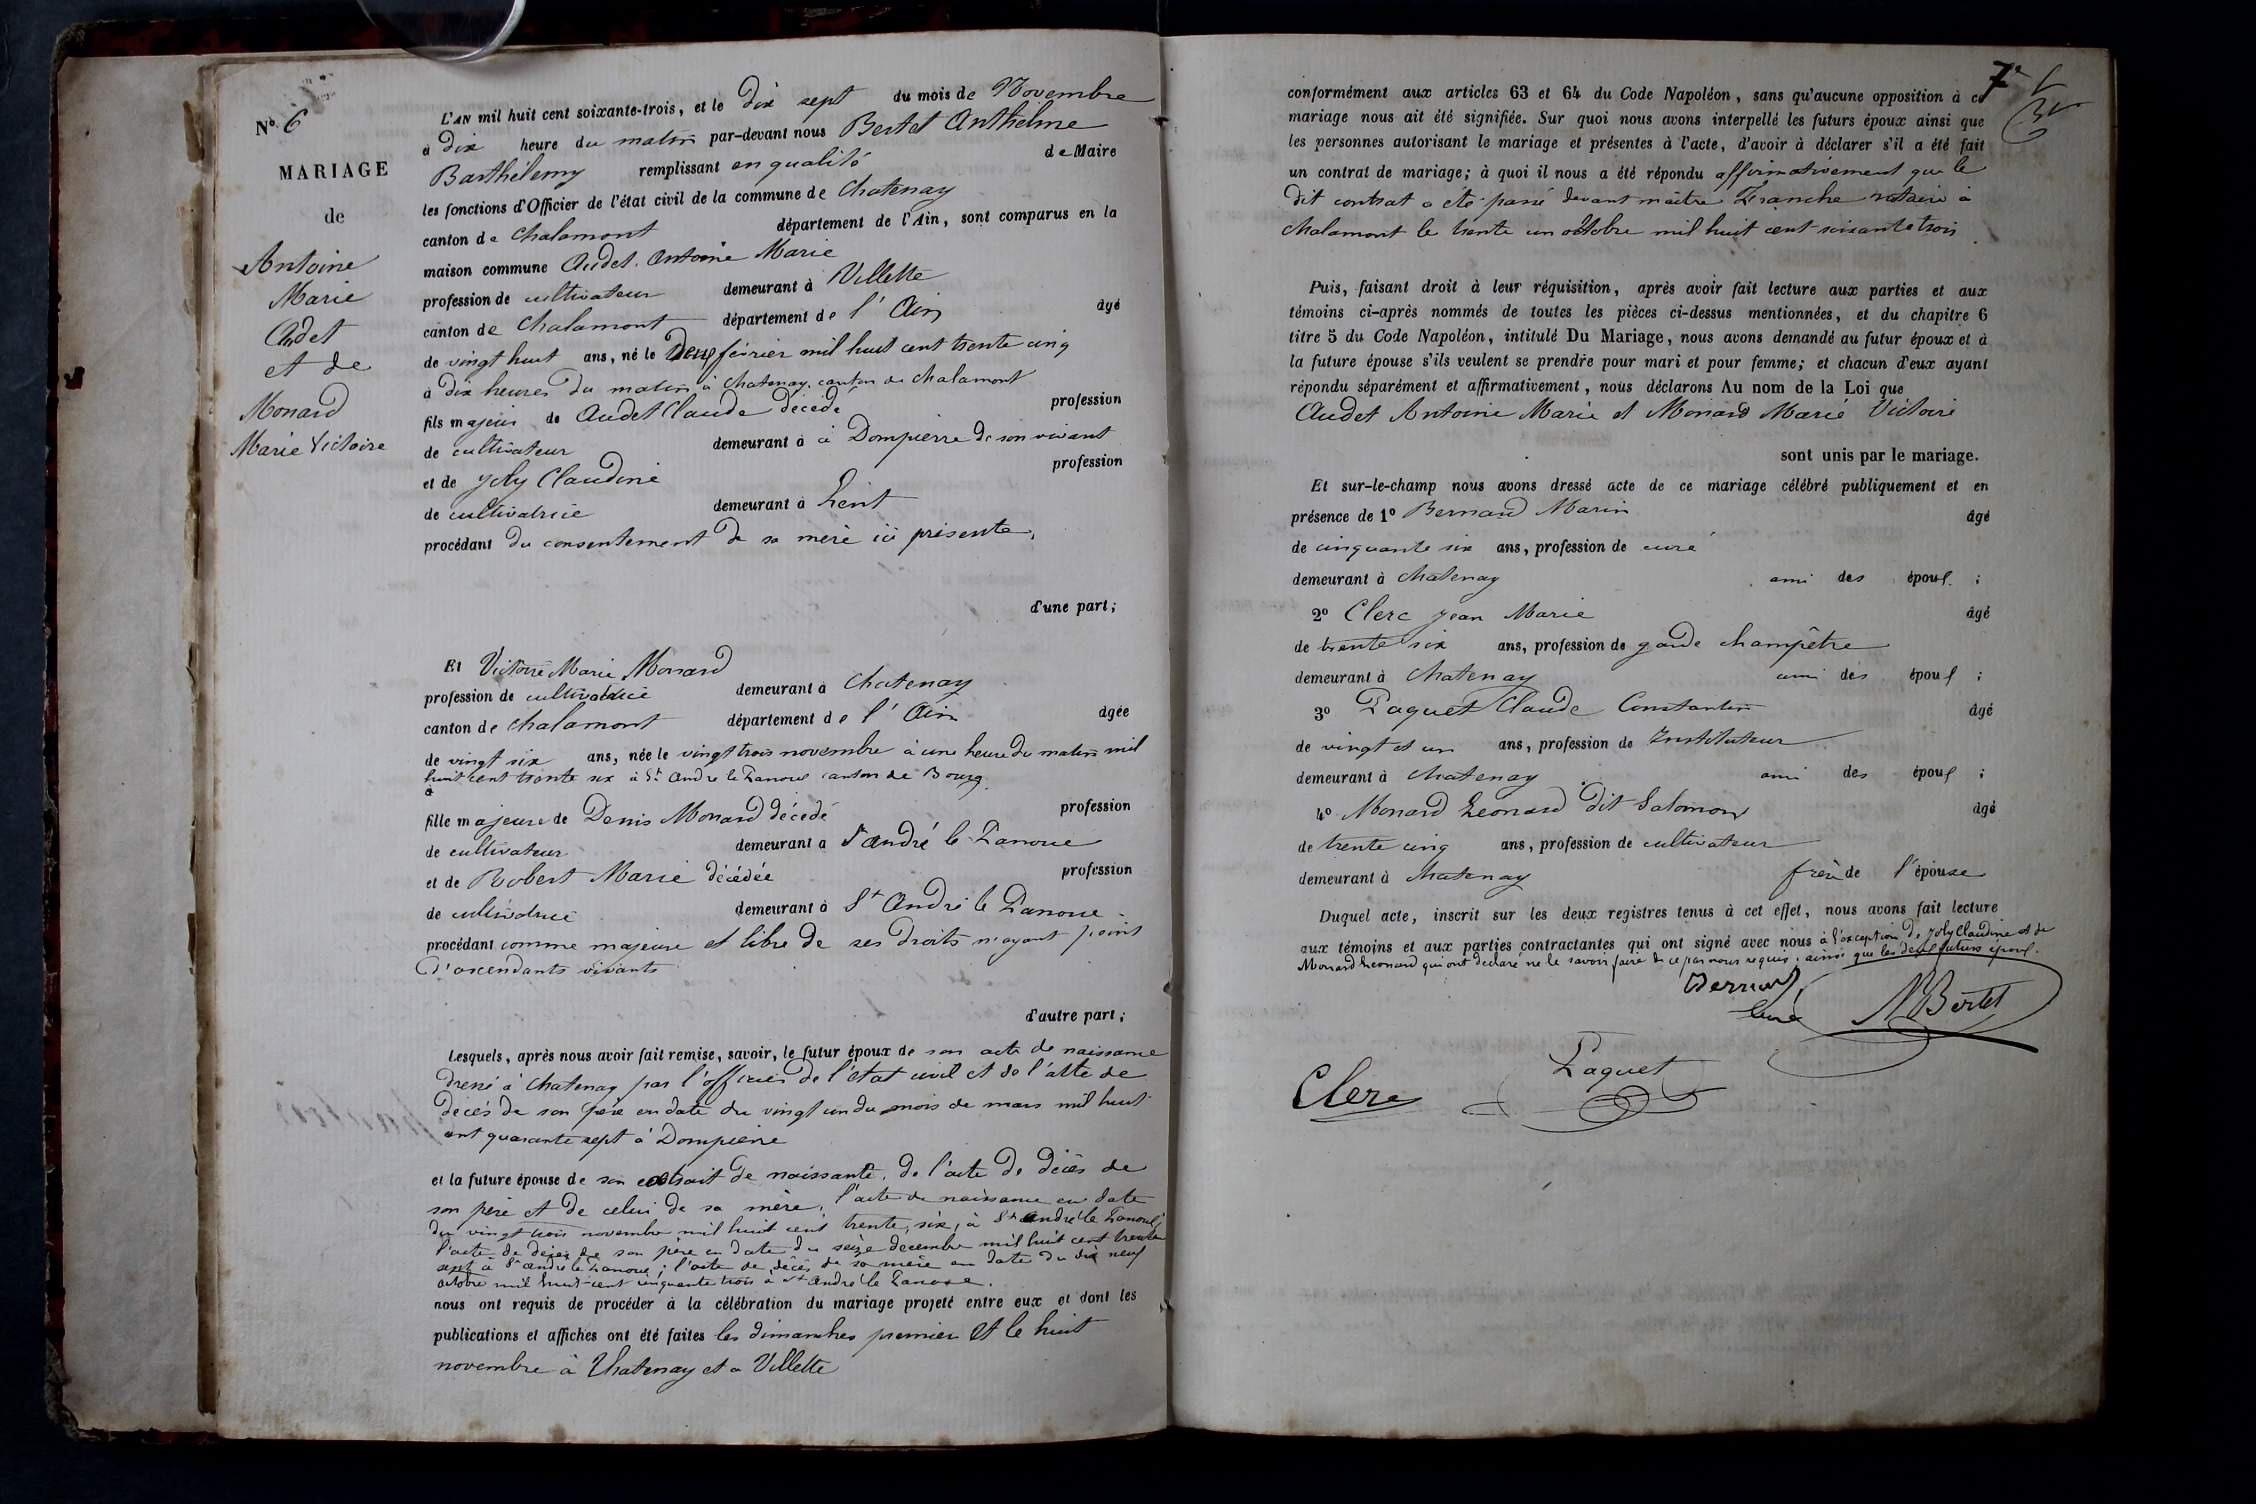 Nº 6
MARIAGE
de
Antoine
Marie
Audet
et de
Monard
Marie Victoire
L'AN mil huit cent soixante-trois, et le dix sept du mois de Novembre
à dix heure du matin par-devant nous Bertet Anthelme
Barthélemy remplissant en qualité de Maire
les fonctions d'Officier de l'état civil de la commune de Chatenay
canton de Chalamont département de l'Ain, sont comparus en la
maison commune Audet Antoine Marie
profession de cultivateur demeurant à Villette
canton de Chalamont département de l'Ain âgé
de vingt huit ans, né le deux février mil huit cent trente cinq
à dix heures du matin à Chatenay canton de Chalamont
fils majeur de Audet Claude décédé profession
de cultivateur demeurant à à Dompierre de son vivant
et de Joly Claudine profession
de cultivatrice demeurant à Lent
procédant du consentement de sa mère ici présente,
d'une part;
Et Victoire Marie Monard
profession de cultivatrice demeurant à Chatenay
canton de Chalamont département de l'Ain âgée
de vingt six ans, née le vingt trois novembre à une heure du matin mil
huit cent trente six à St André le Panoux canton de Bourg.
à
fille majeure de Denis Monard décédé profession
de cultivateur demeurant a St André le Panoux
et de Robert Marie décédée profession
de cultivatrice demeurant à St André le Panoux
procédant comme majeure et libre de ses droits n'ayant point
d'ascendants vivants
d'autre part;
Lesquels, après nous avoir fait remise, savoir, le futur époux de son acte de naissance
dressé à Chatenay par l'officier de l'état civil et de l'acte de
décès de son père en date du vingt un du mois de mars mil huit
cent quarante sept à Dompierre
et la future épouse de son extrait de naissante, de l'acte de décès de
son père et de celui de sa mère, l'acte de naissance en date
du vingt trois novembre mil huit cent trente six, à St André le Panoux;
l'acte de décès de son père en date du seize décembre mil huit cent trente
sept à St André le Panoux; l'acte de décès de sa mère en date du dix neuf
octobre mil huit cent cinquante trois à St André le Panoux.
nous ont requis de procéder à la célébration du mariage projeté entre eux et dont les
publications et affiches ont été faites les dimanches premier et le huit
novembre à Chatenay et a Villette
7
conformément aux articles 63 et 64 du Code Napoléon, sans qu'aucune opposition à ce
mariage nous ait été signifiée. Sur quoi nous avons interpellé les futurs époux ainsi que
les personnes autorisant le mariage et présentes à l'acte, d'avoir à déclarer s'il a été fait
un contrat de mariage; à quoi il nous a été répondu affirmativement que le
dit contrat a été passé devant maître Franche notaire à
Chalamont le trente un octobre mil huit cent soixante trois
Puis, faisant droit à leur réquisition, après avoir fait lecture aux parties et aux
témoins ci-après nommés de toutes les pièces ci-dessus mentionnées, et du chapitre 6
titre 5 du Code Napoléon, intitulé Du Mariage, nous avons demandé au futur époux et à
la future épouse s'ils veulent se prendre pour mari et pour femme; et chacun d'eux ayant
répondu séparément et affirmativement, nous déclarons Au nom de la Loi que
Audet Antoine Marie et Monard Marie Victoire
sont unis par le mariage.
Et sur-le-champ nous avons dressé acte de ce mariage célébré publiquement et en
présence de 1º Bernard Marin âgé
de cinquante six ans, profession de curé
demeurant à Chatenay ami des époux;
2º Clerc Jean Marie âgé
de trente six ans, profession de garde champêtre
demeurant à Chatenay ami des époux;
3º Paquet Claude Constantin âgé
de vingt et un ans, profession de Instituteur
demeurant à Chatenay ami des époux;
4º Monard Leonard dit Salomon âgé
de trente cinq ans, profession de cultivateur
demeurant à Chatenay frère de l'épouse
Duquel acte, inscrit sur les deux registres tenus à cet effet, nous avons fait lecture
aux témoins et aux parties contractantes qui ont signé avec nous à l'exception de Joly Claudine et de
Monard Leonard qui ont déclaré ne le savoir faire de ce par nous requis. ainsi que les deux futurs époux.
Bernard
curé
Bertet
Paquet
Clerc